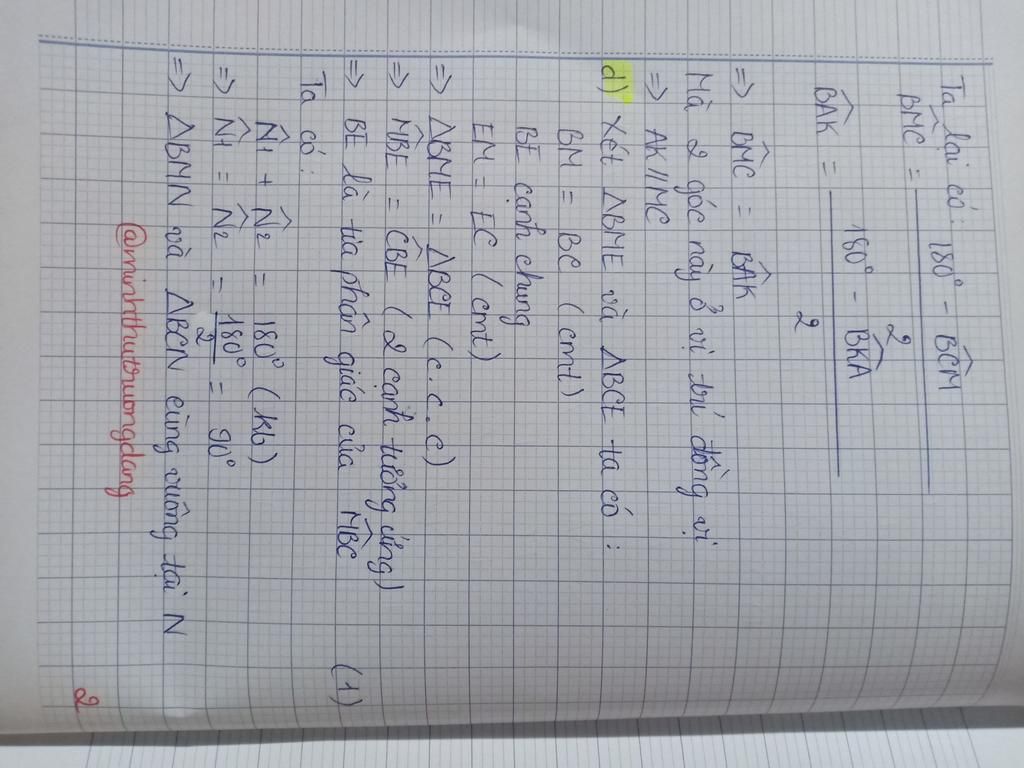 Ta lại có:
BMC = 180° - BCM / 2
BAK = 180° - BKA / 2
=> BMC = BAK
Mà 2 góc này ở vị trí đồng vị
=> AK//MC
d) Xét ΔBME và ΔBCE ta có:
BM = BC (cmt)
BE cạnh chung
EM = EC (cmt)
=> ΔBME = ΔBCE (c.c.c)
=> MBE = CBE (2 cạnh tương ứng)
=> BE là tia phân giác của MBC (1)
Ta có:
N1 + N2 = 180° (kb)
=> N1 = N2 = 180° / 2 = 90°
=> ΔBMN và ΔBCN cùng vuông tại N
@minhthutruongdang
2